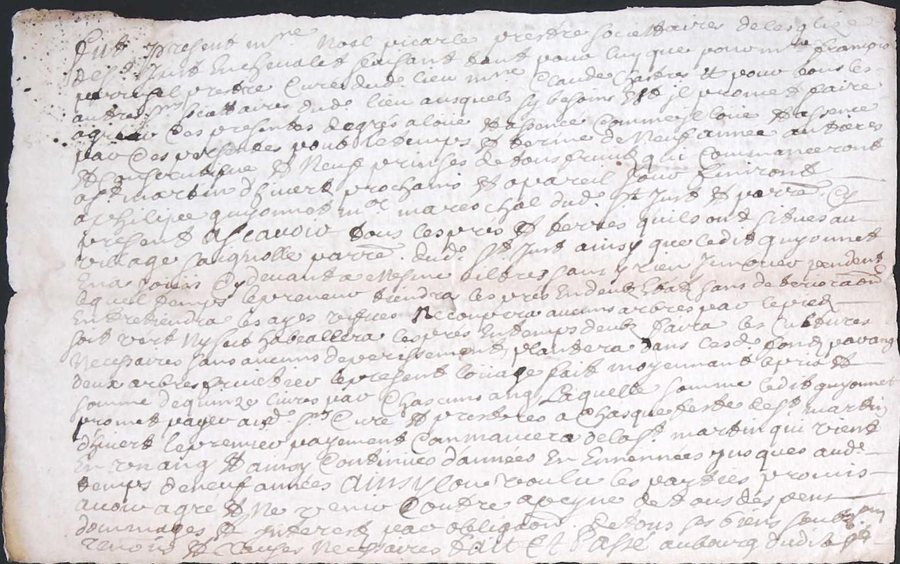 fut present m.re Noel picarle prestre societtaires de lesglize
de St Just En chevalet faisant tant pour luy que pour m.re françois
perrival prestre Curé dud. lieu m.re Claude Chastres Et pour tous les
autres s.rs socettaires dud. lieu ausquels sy besoins Est il promet faire
agreer Ces presentes de gres a loué Et assencé Comme il loue Et assence
par Ces presentes pour le temps Et terme de Neuf année antieres
Et Consecutisve Et Neuf prinses de tous fruicts qui Commanceront
a St martin d'hivert prochains Et a pareil jour finiront
a philipee guyonnet m.e mareschal dud. St Just Et parrē Cy
present Ascavoir tous les prés Et terres qu'ils ont situés au
village parrē. dud. St Just ainsy que ledit guyonnet
En a jouis Cy devant a Mesme tiltre sans y rien
lequel temps le preneur tiendra les prés En deub Estat sans de terioration
Entretiendra les ayes vifves Ne Couppera aucuns arbres par le pied
soit vert Ny sect les prés En temps deub faira les Cultures
Necessaires sans aucuns deperissement plantera dans lesd. fonds par ang
deux arbres fruictier le present louage fait moyennant le prix Et
somme de quinze livres par Chascuns ang Laquelle somme ledit guyonnet
promet payer aud. s.r Curé Et prestres a Chasque feste de St martin
d'hivert le premier payement Commancera de la St martin qui vient
En un ang Et ainsy Continuer d'années En Ennennées jusques aud.
temps de neuf années Ainsy loue voulu les parties promis
avoir agré Et Ne venir Contre a peyne de tous despens
dommages Et interest par obligaōn de tous ses biens
renons Et Clauses Necessaires fait Et Passé au bourg dudit St